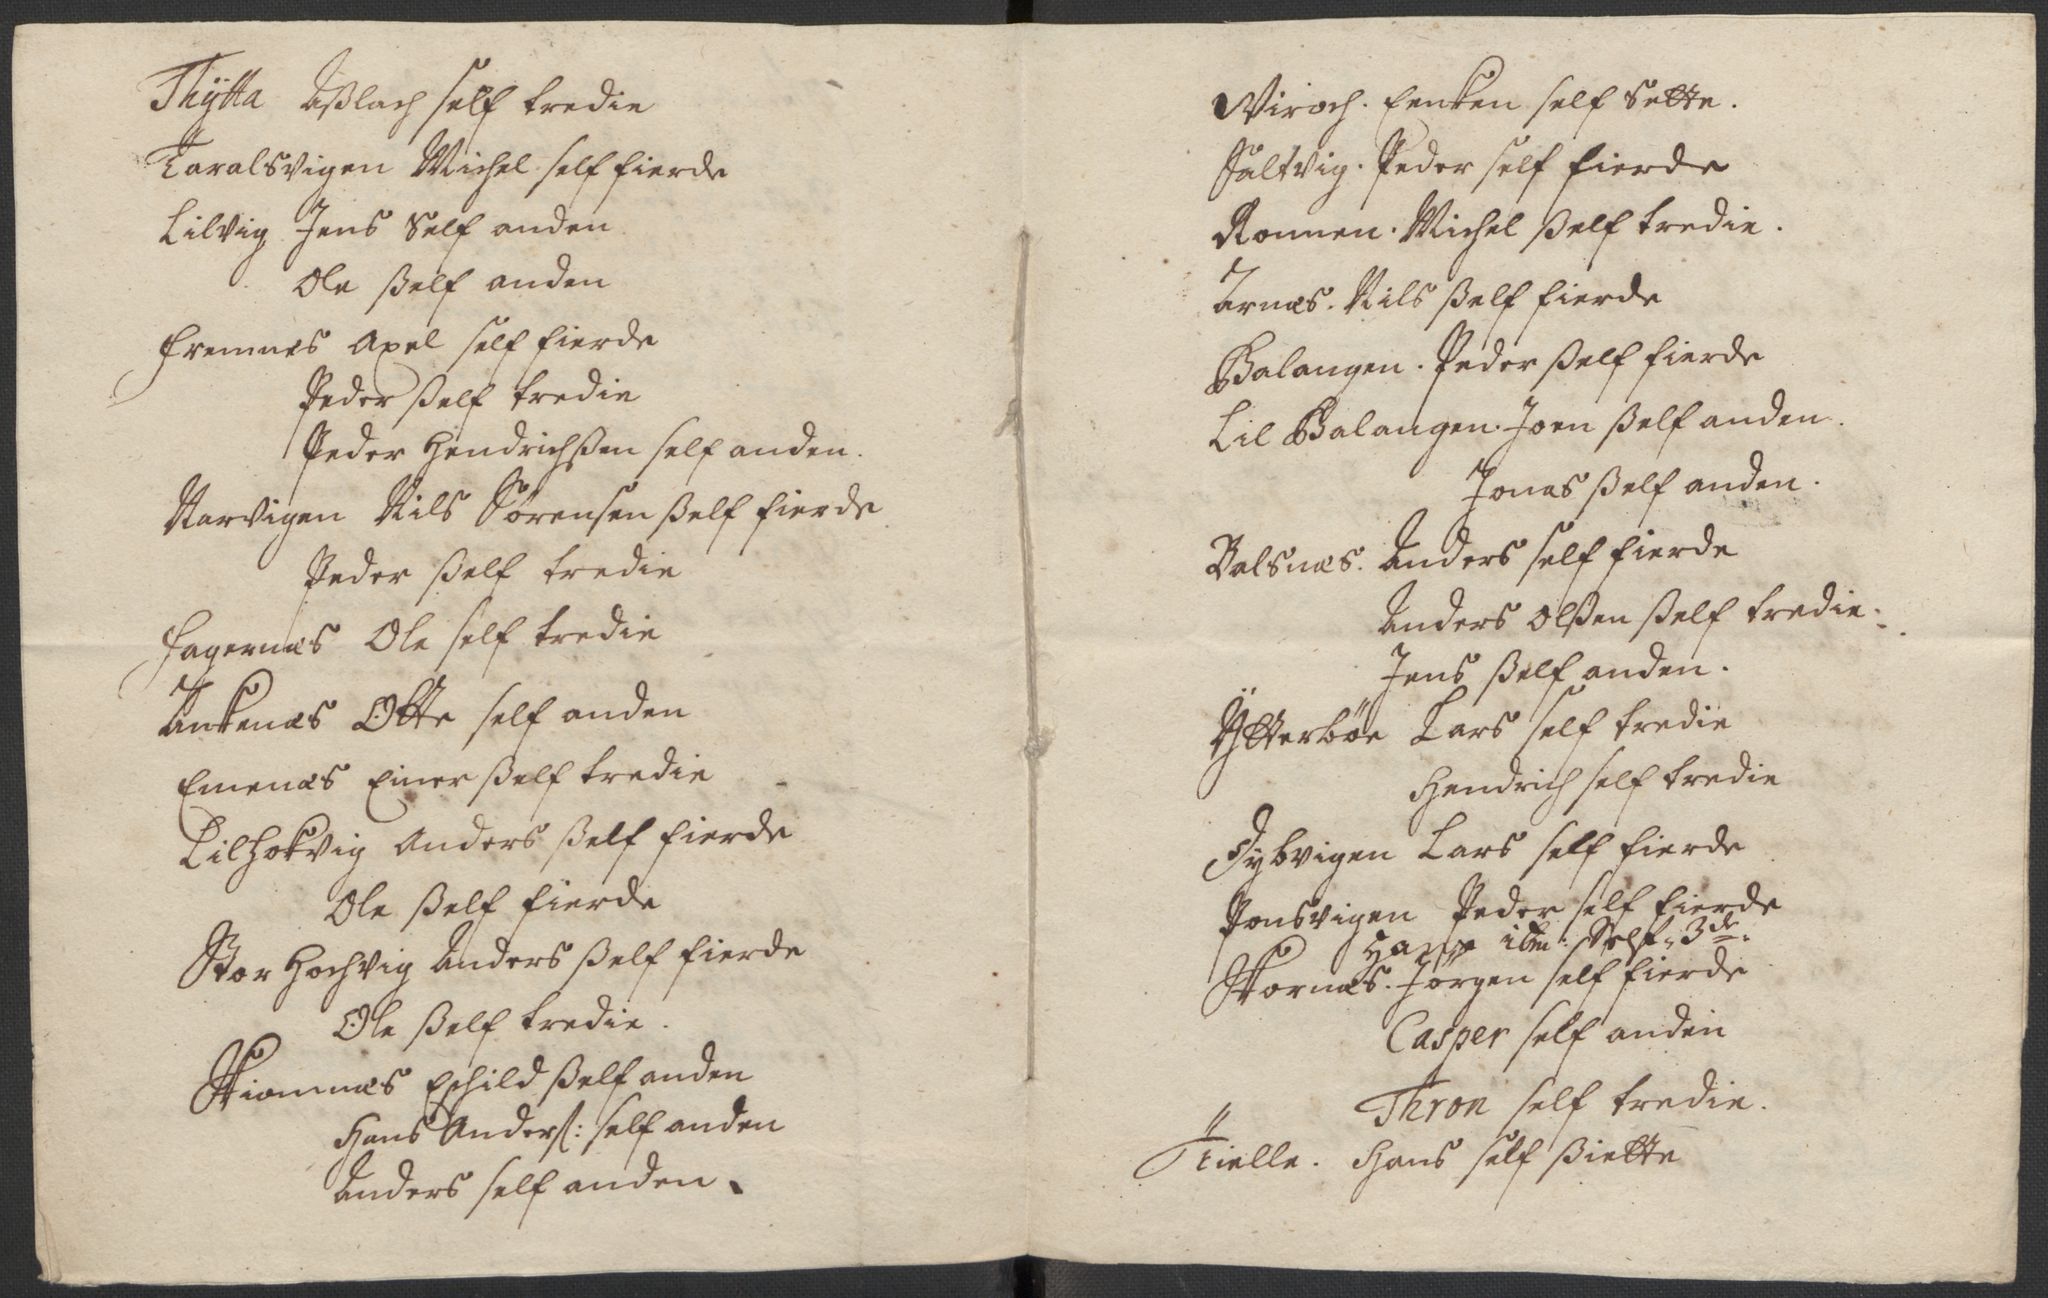 Thÿtta Aßlach self tredie
Taralsvigen Michel self fierde
Lilvig Jens Self anden
Ole ßelf anden
Fremnes Axel self fierde
Peder ßelf tredie
Peder Hendrichßen self anden.
Narvigen Nils Sørensen ßelf fierde
Peder ßelf tredie
Fagernæs Ole self tredie
Ankenæs Otte self anden
Emenæs Einer ßelf tredie
Lilhokvig Anders ßelf fierde
Ole ßelf fierde
Stor Hochvig Anders ßelf fierde
Ole ßelf tredie.
Skiomnæs Eschild ßelf anden
Hans Anderß: self anden
Anders self anden.
Wiroch. Enken self Sette.
Saltvig. Peder self fierde
Ronnen. Michel ßelf tredie.
Arnæs. Nils ßelf fierde
Balangen. Peder ßelf fierde
Lil Balangen. Joen ßelf anden.
Jonas ßelf anden.
Balsnæs. Anders self fierde
Anders Olßen ßelf tredie.
Jens ßelf anden.
Ÿtterbøe Lars self tredie
Hendrich self tredie
Dybvigen Lars self fierde
Ponsvigen Peder self fierde
Hans ibm: Self 3de.
Stornæs. Jørgen self fierde
Casper self anden
Thron self tredie.
Kielle. Hans self ßiette